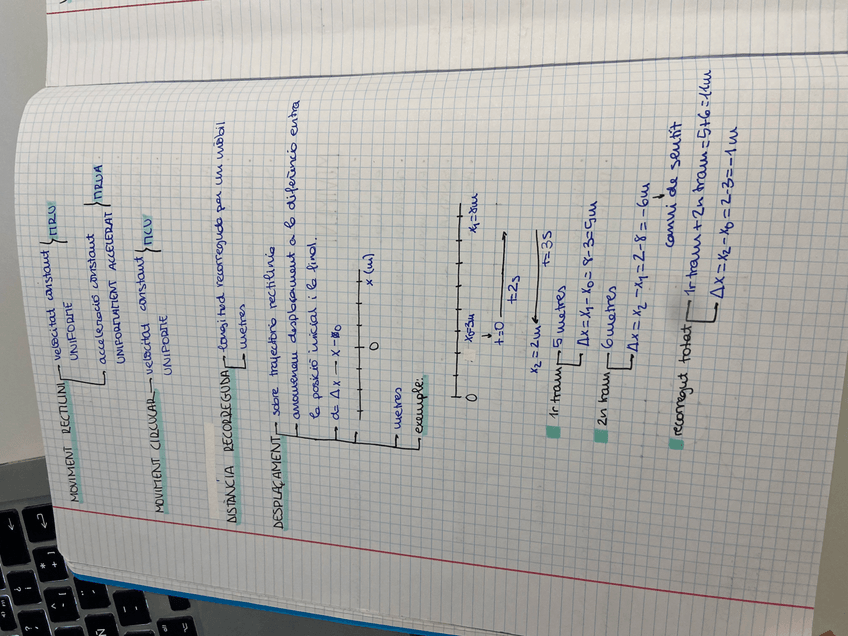 MOVIMENT RECTILINI velocitat constant } MRU
UNIFORME
acceleració constant } MRUA
UNIFORMEMENT ACCELERAT
MOVIMENT CIRCULAR velocitat constant } MCU
UNIFORME
DISTÀNCIA RECORREGUDA longitud recorreguda per un mòbil
metres
DESPLAÇAMENT sobre trajectòria rectilínia
anomenem desplaçament a la diferència entre
la posició inicial i la final.
de Δx → x - x0
0 x (m)
metres
exemple:
0 x0=3m x1=8m
t=0
t=2s
x2=2m t=3s
1r tram 5 metres
Δx = x1 - x0 = 8-3=5m
2n tram 6 metres
Δx = x2 - x1 = 2-8 = -6m
canvi de sentit
recorregut total 1r tram + 2n tram = 5+6 = 11m
Δx = x2 - x0 = 2-3 = -1m